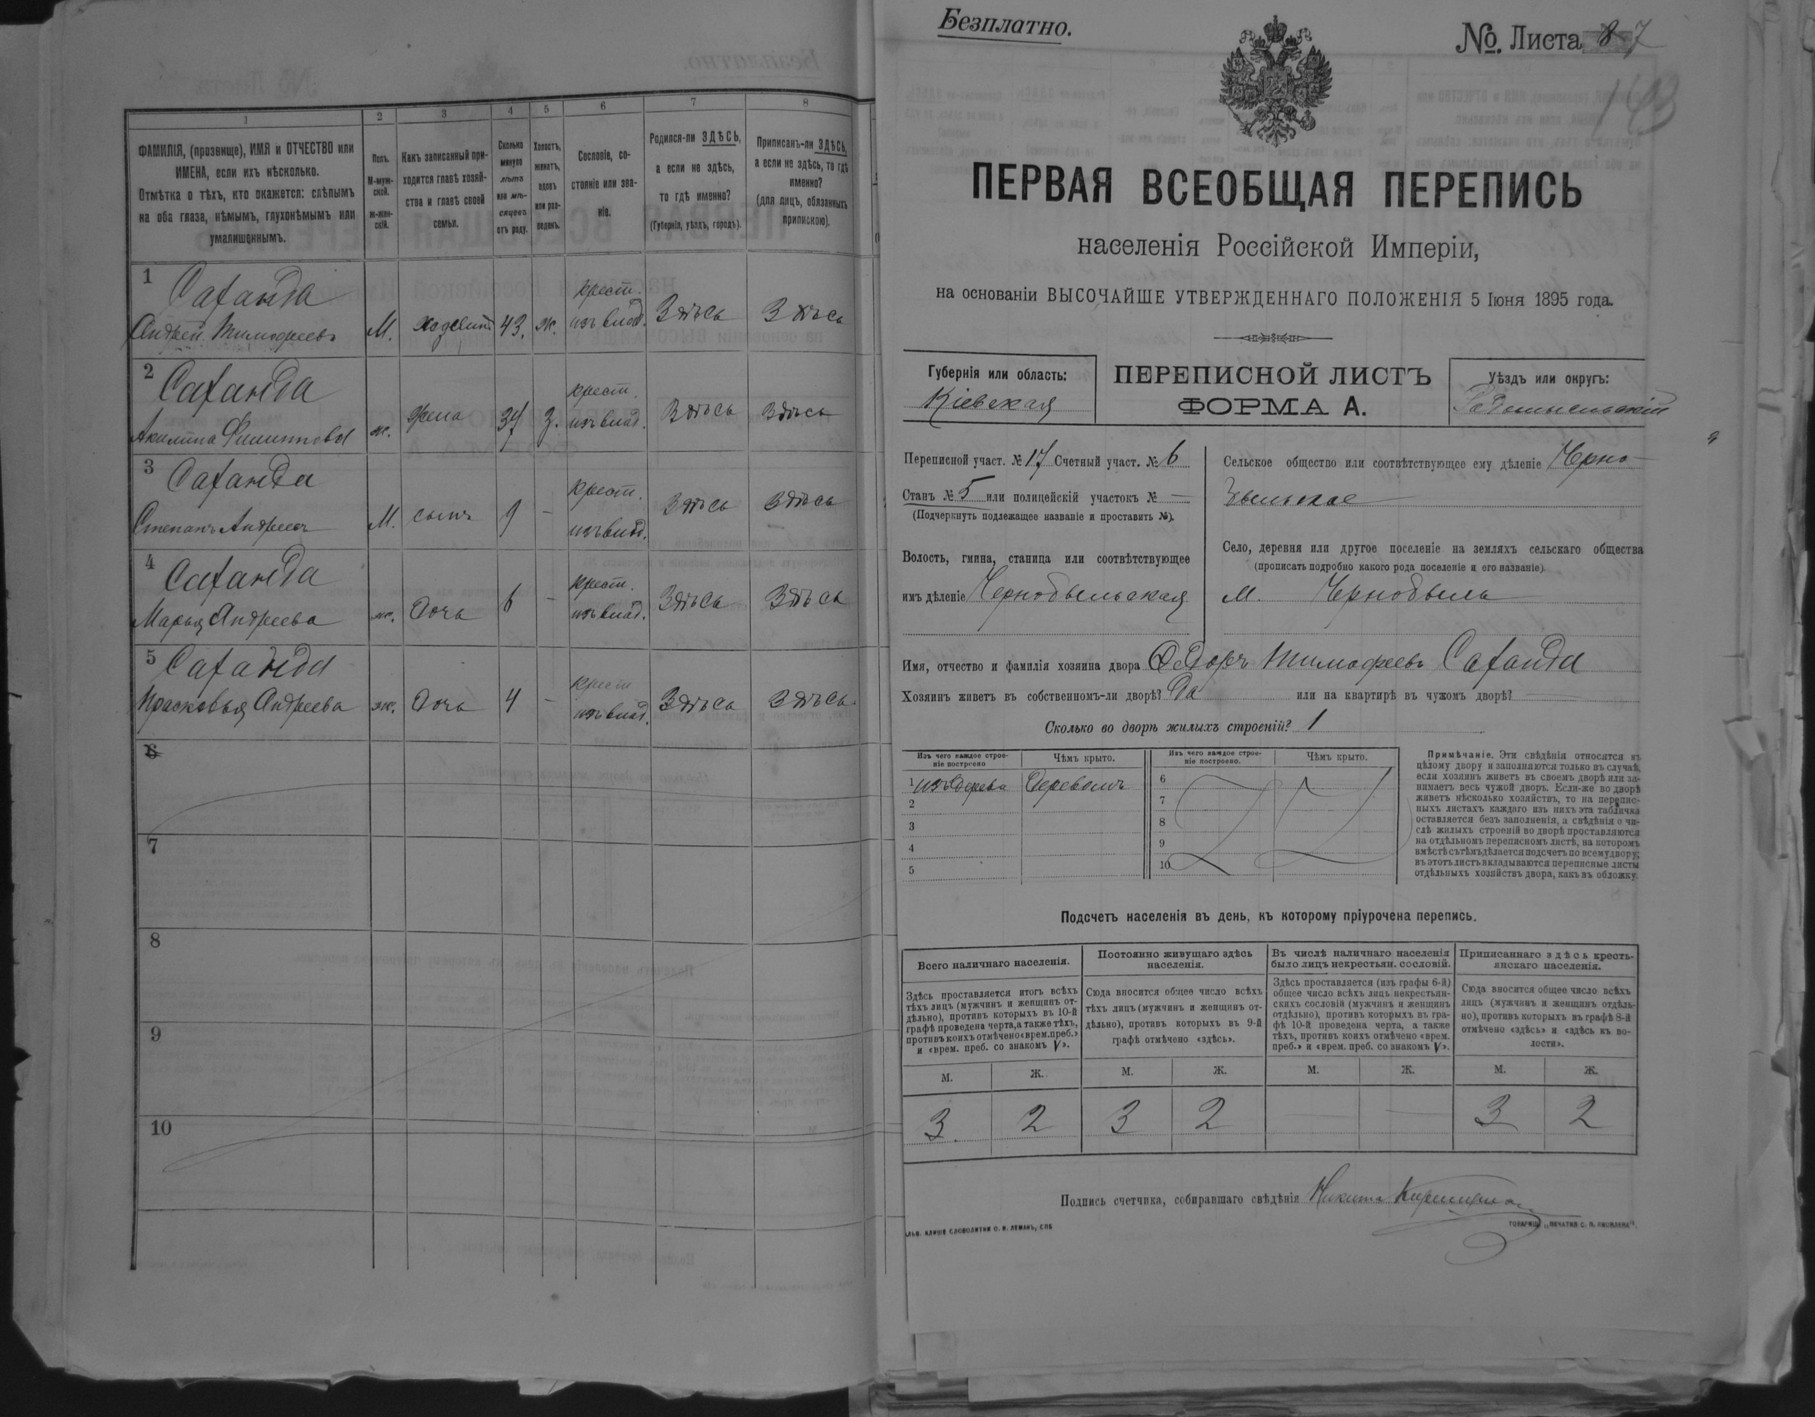 1
2
3
4
5
6
7
8
ФАМИЛІЯ, (прозвище), ИМЯ и ОТЧЕСТВО или
ИМЕНА, если ихъ нѣсколько.
Отмѣтка о тѣхъ, кто окажется: слѣпымъ
на оба глаза, нѣмымъ, глухонѣмымъ или
умалишеннымъ.
Полъ.
М-муж-
ской.
ж-жен-
скій.
Какъ записанный при-
ходится главѣ хозяй-
ства и главѣ своей
семьи.
Сколько
минуло
лѣтъ
или мѣ-
сяцевъ
отъ роду.
Холостъ,
женатъ,
вдовъ
или раз-
веденъ.
Сословіе, со-
стояніе или зва-
ніе.
Родился-ли ЗДѢСЬ,
а если не здѣсь,
то гдѣ именно?
(Губернія, уѣздъ, городъ).
Приписанъ-ли ЗДѢСЬ,
а если не здѣсь, то гдѣ
именно?
(для лицъ, обязанныхъ
припискою).
1
Андрей Тимофеевъ М. 43. ж. крест. изъ влад. Здѣсь Здѣсь
2
Акилина Филиппова ж. жена 37 з. крест. изъ влад. Здѣсь Здѣсь
3
Степанъ Андреевъ М. сынъ 9 - крест. изъ влад. Здѣсь Здѣсь
4
Марья Андреева ж. дочь 6 - крест. изъ влад. Здѣсь Здѣсь
5
Прасковья Андреева ж. дочь 4 - крест. изъ влад. Здѣсь Здѣсь
6
7
8
9
10
Безплатно.
№. Листа 7
143
ПЕРВАЯ ВСЕОБЩАЯ ПЕРЕПИСЬ
населенія Россійской Имперіи,
на основаніи ВЫСОЧАЙШЕ УТВЕРЖДЕННАГО ПОЛОЖЕНІЯ 5 Іюня 1895 года.
Губернія или область:
Кіевская
ПЕРЕПИСНОЙ ЛИСТЪ
ФОРМА А.
Уѣздъ или округъ:
Радомысльскій
Переписной участ. № 17 Счетный участ. № 6
Станъ № 5 или полицейскій участокъ № —
(Подчеркнуть подлежащее названіе и проставить №).
Волость, гмина, станица или соотвѣтствующее
имъ дѣленіе Чернобыльская
Сельское общество или соотвѣтствующее ему дѣленіе Черно-
быльское
Село, деревня или другое поселеніе на земляхъ сельскаго общества
(прописать подробно какого рода поселеніе и его названіе).
м. Чернобыль
Имя, отчество и фамилія хозяина двора Ѳедоръ Тимофеевъ
Хозяинъ живетъ въ собственномъ-ли дворѣ? Да или на квартирѣ въ чужомъ дворѣ? —
Сколько во дворѣ жилыхъ строеній? 1
Изъ чего каждое строе-
ніе построено
Чѣмъ крыто.
Изъ чего каждое строе-
ніе построено.
Чѣмъ крыто.
1 изъ дерева Деревомъ
2
3
4
5
6
7
8
9
10
Примѣчаніе. Эти свѣдѣнія относятся къ
цѣлому двору и заполняются только въ случаѣ,
если хозяинъ живетъ въ своемъ дворѣ или за-
нимаетъ весь чужой дворъ. Если-же во дворѣ
живетъ нѣсколько хозяйствъ, то на перепис-
ныхъ листахъ каждаго изъ нихъ эта табличка
оставляется безъ заполненія, а свѣдѣнія о чи-
слѣ жилыхъ строеній во дворѣ проставляются
на отдѣльномъ переписномъ листѣ, на которомъ
вмѣстѣ съ тѣмъ дѣлается подсчетъ по всему двору;
въ этотъ листъ вкладываются переписные листы
отдѣльныхъ хозяйствъ двора, какъ въ обложку.
Подсчетъ населенія въ день, къ которому пріурочена перепись.
Всего наличнаго населенія.
Постоянно живущаго здѣсь
населенія.
Въ числѣ наличнаго населенія
было лицъ некрестьян. сословій.
Приписаннаго здѣсь кресть-
янскаго населенія.
Здѣсь проставляется итогъ всѣхъ
тѣхъ лицъ (мужчинъ и женщинъ от-
дѣльно), противъ которыхъ въ 10-й
графѣ проведена черта, а также тѣхъ,
противъ коихъ отмѣчено «врем. преб.»
и «врем. преб. со знакомъ V».
Сюда вносится общее число всѣхъ
тѣхъ лицъ (мужчинъ и женщинъ от-
дѣльно), противъ которыхъ въ 9-й
графѣ отмѣчено «здѣсь».
Здѣсь проставляется (изъ графы 6-й)
общее число всѣхъ лицъ некрестьян-
скихъ сословій (мужчинъ и женщинъ
отдѣльно), противъ которыхъ въ гра-
фѣ 10-й проведена черта, а также
тѣхъ, противъ коихъ отмѣчено «врем.
преб.» и «врем. преб. со знакомъ V».
Сюда вносится общее число всѣхъ
лицъ (мужчинъ и женщинъ отдѣль-
но), противъ которыхъ въ графѣ 8-й
отмѣчено «здѣсь» и «здѣсь къ во-
лости».
М. Ж. М. Ж. М. Ж. М. Ж.
3. 2 3 2 — — 3 2
Подпись счетчика, собиравшаго свѣдѣнія Никита